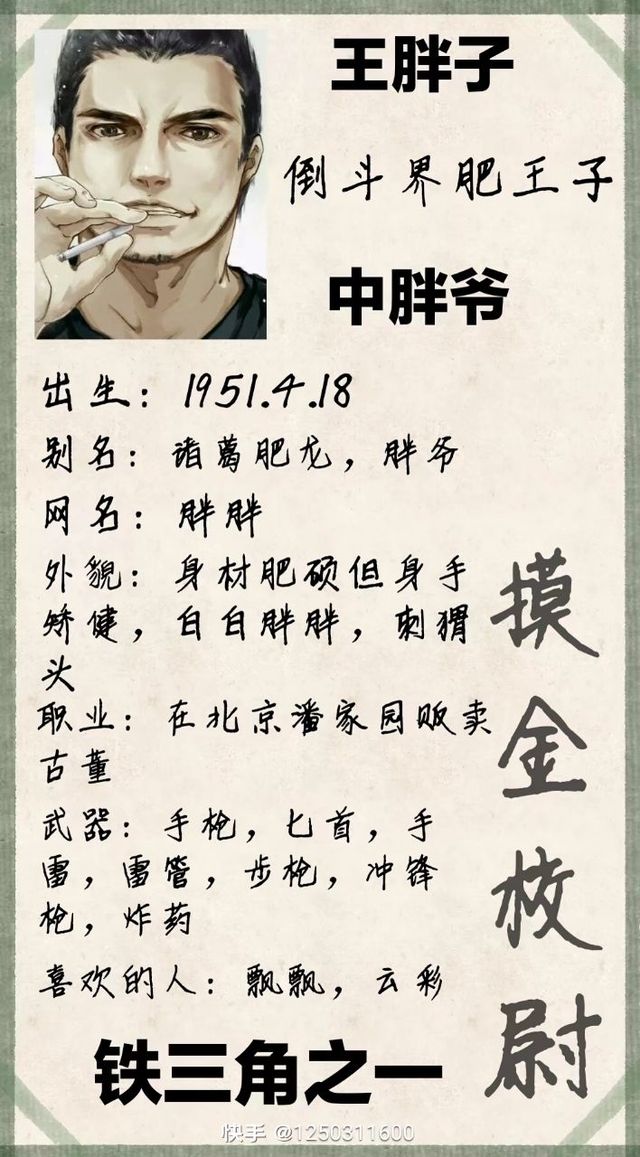 王胖子
倒斗界肥王子
中胖爷
出生：1951.4.18
别名：诸葛肥龙，胖爷
网名：胖胖
外貌：身材肥硕但身手
矫健，白白胖胖，刺猬
头
职业：在北京潘家园贩卖
古董
武器：手枪，匕首，手
雷，雷管，步枪，冲锋
枪，炸药
喜欢的人：飘飘，云彩
摸金校尉
铁三角之一
快手 @1250311600